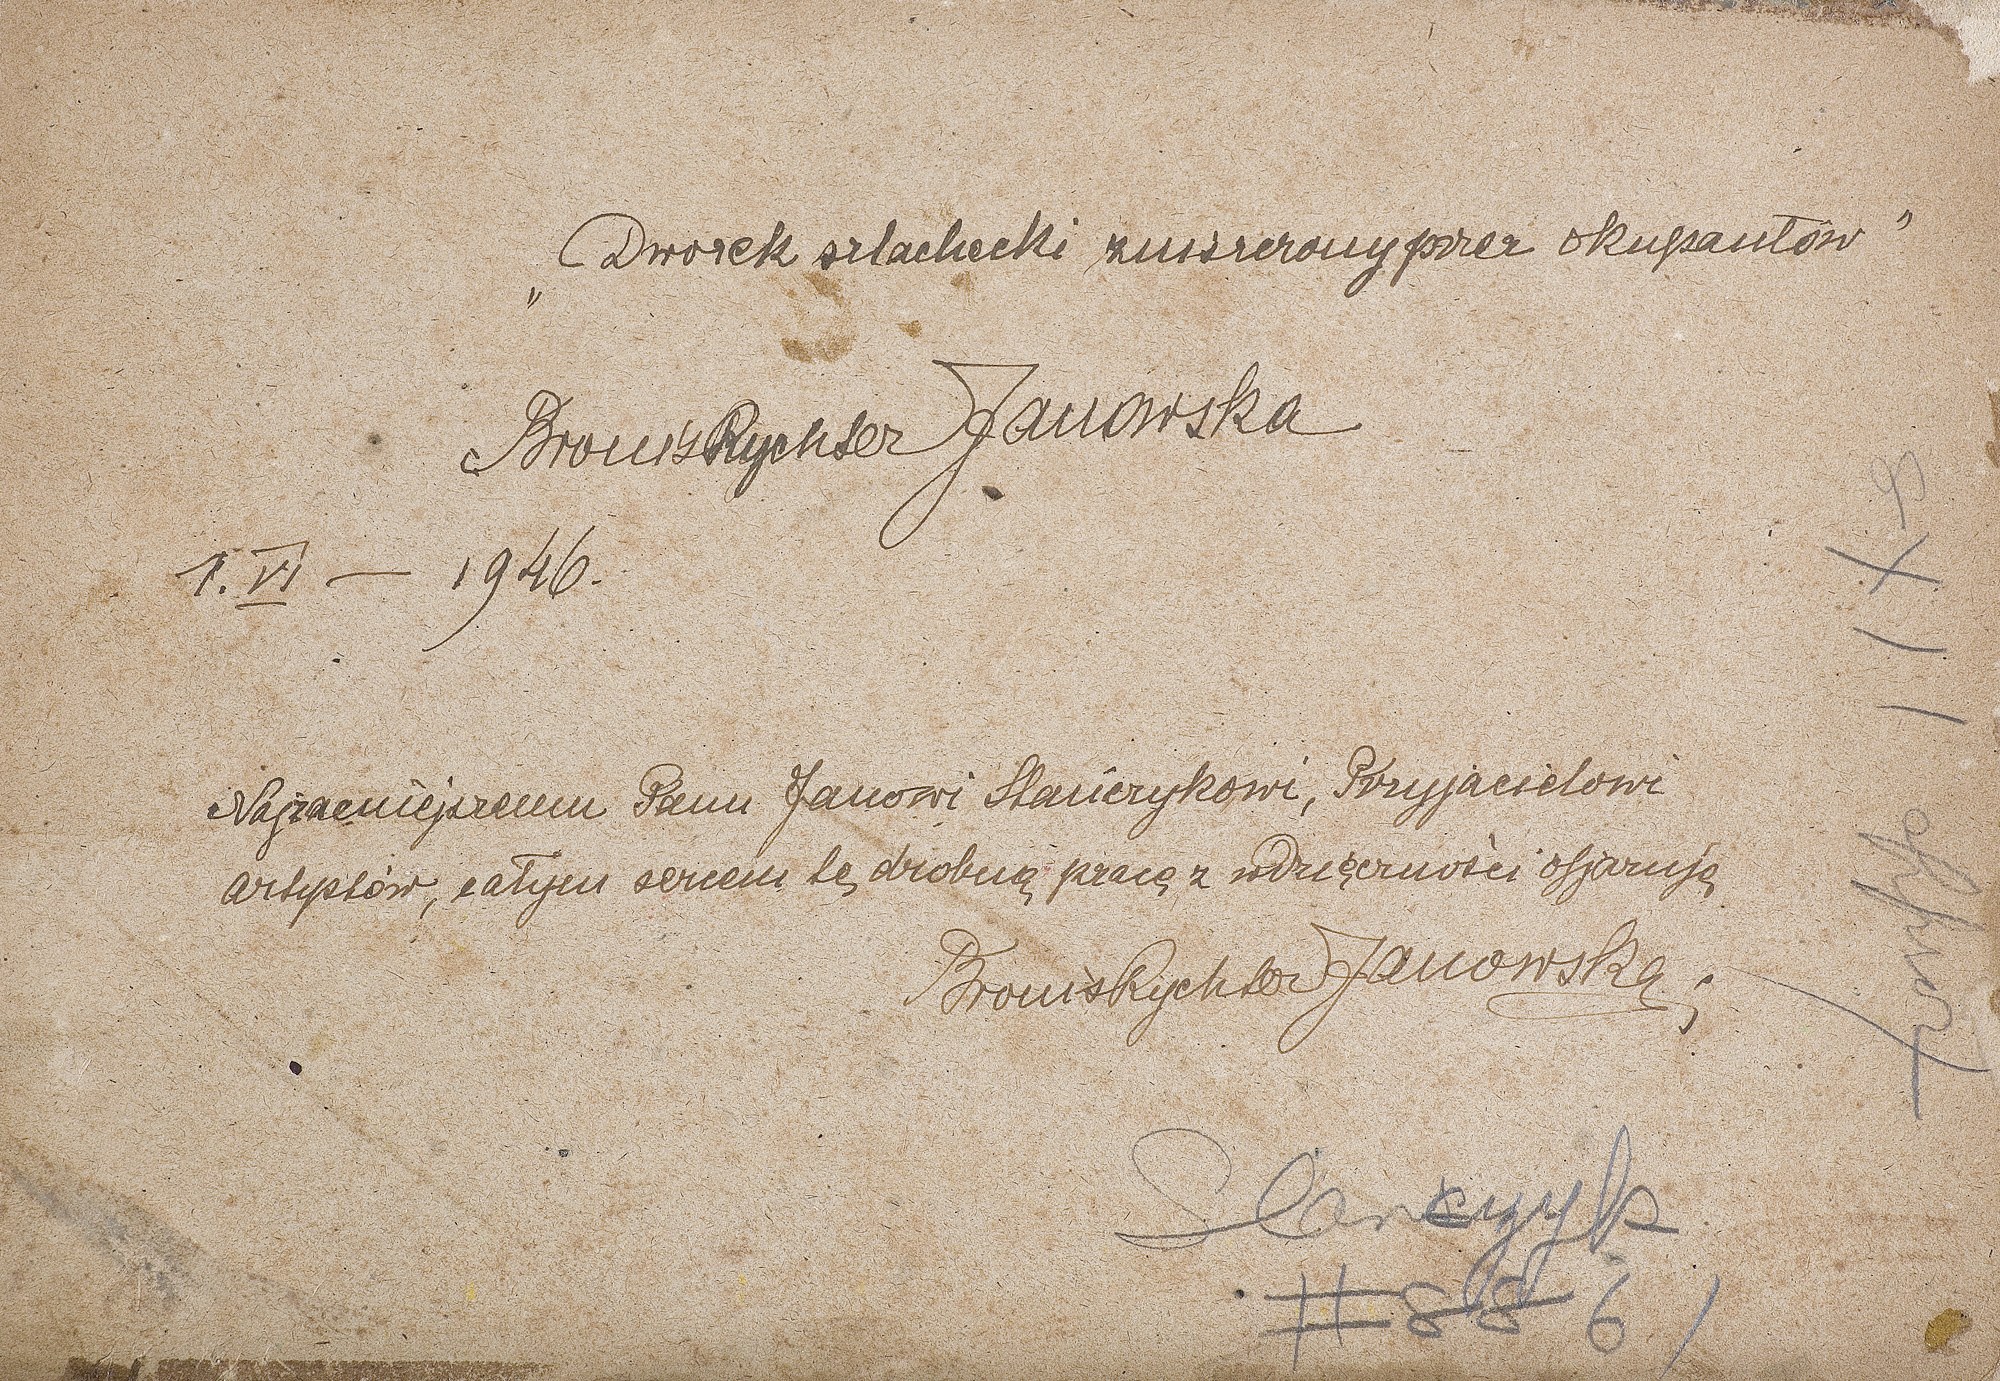 „Dworek szlachecki zniszczony przez okupantów"
Bronis Rychter Janowska
1. VI — 1946.
Najzacniejszemu Panu Janowi Stańczykowi, Przyjacielowi
artystów, całym sercem tę drobną pracę z wdzięczności ofjaruję
Bronis Rychter Janowska
Stanczyk